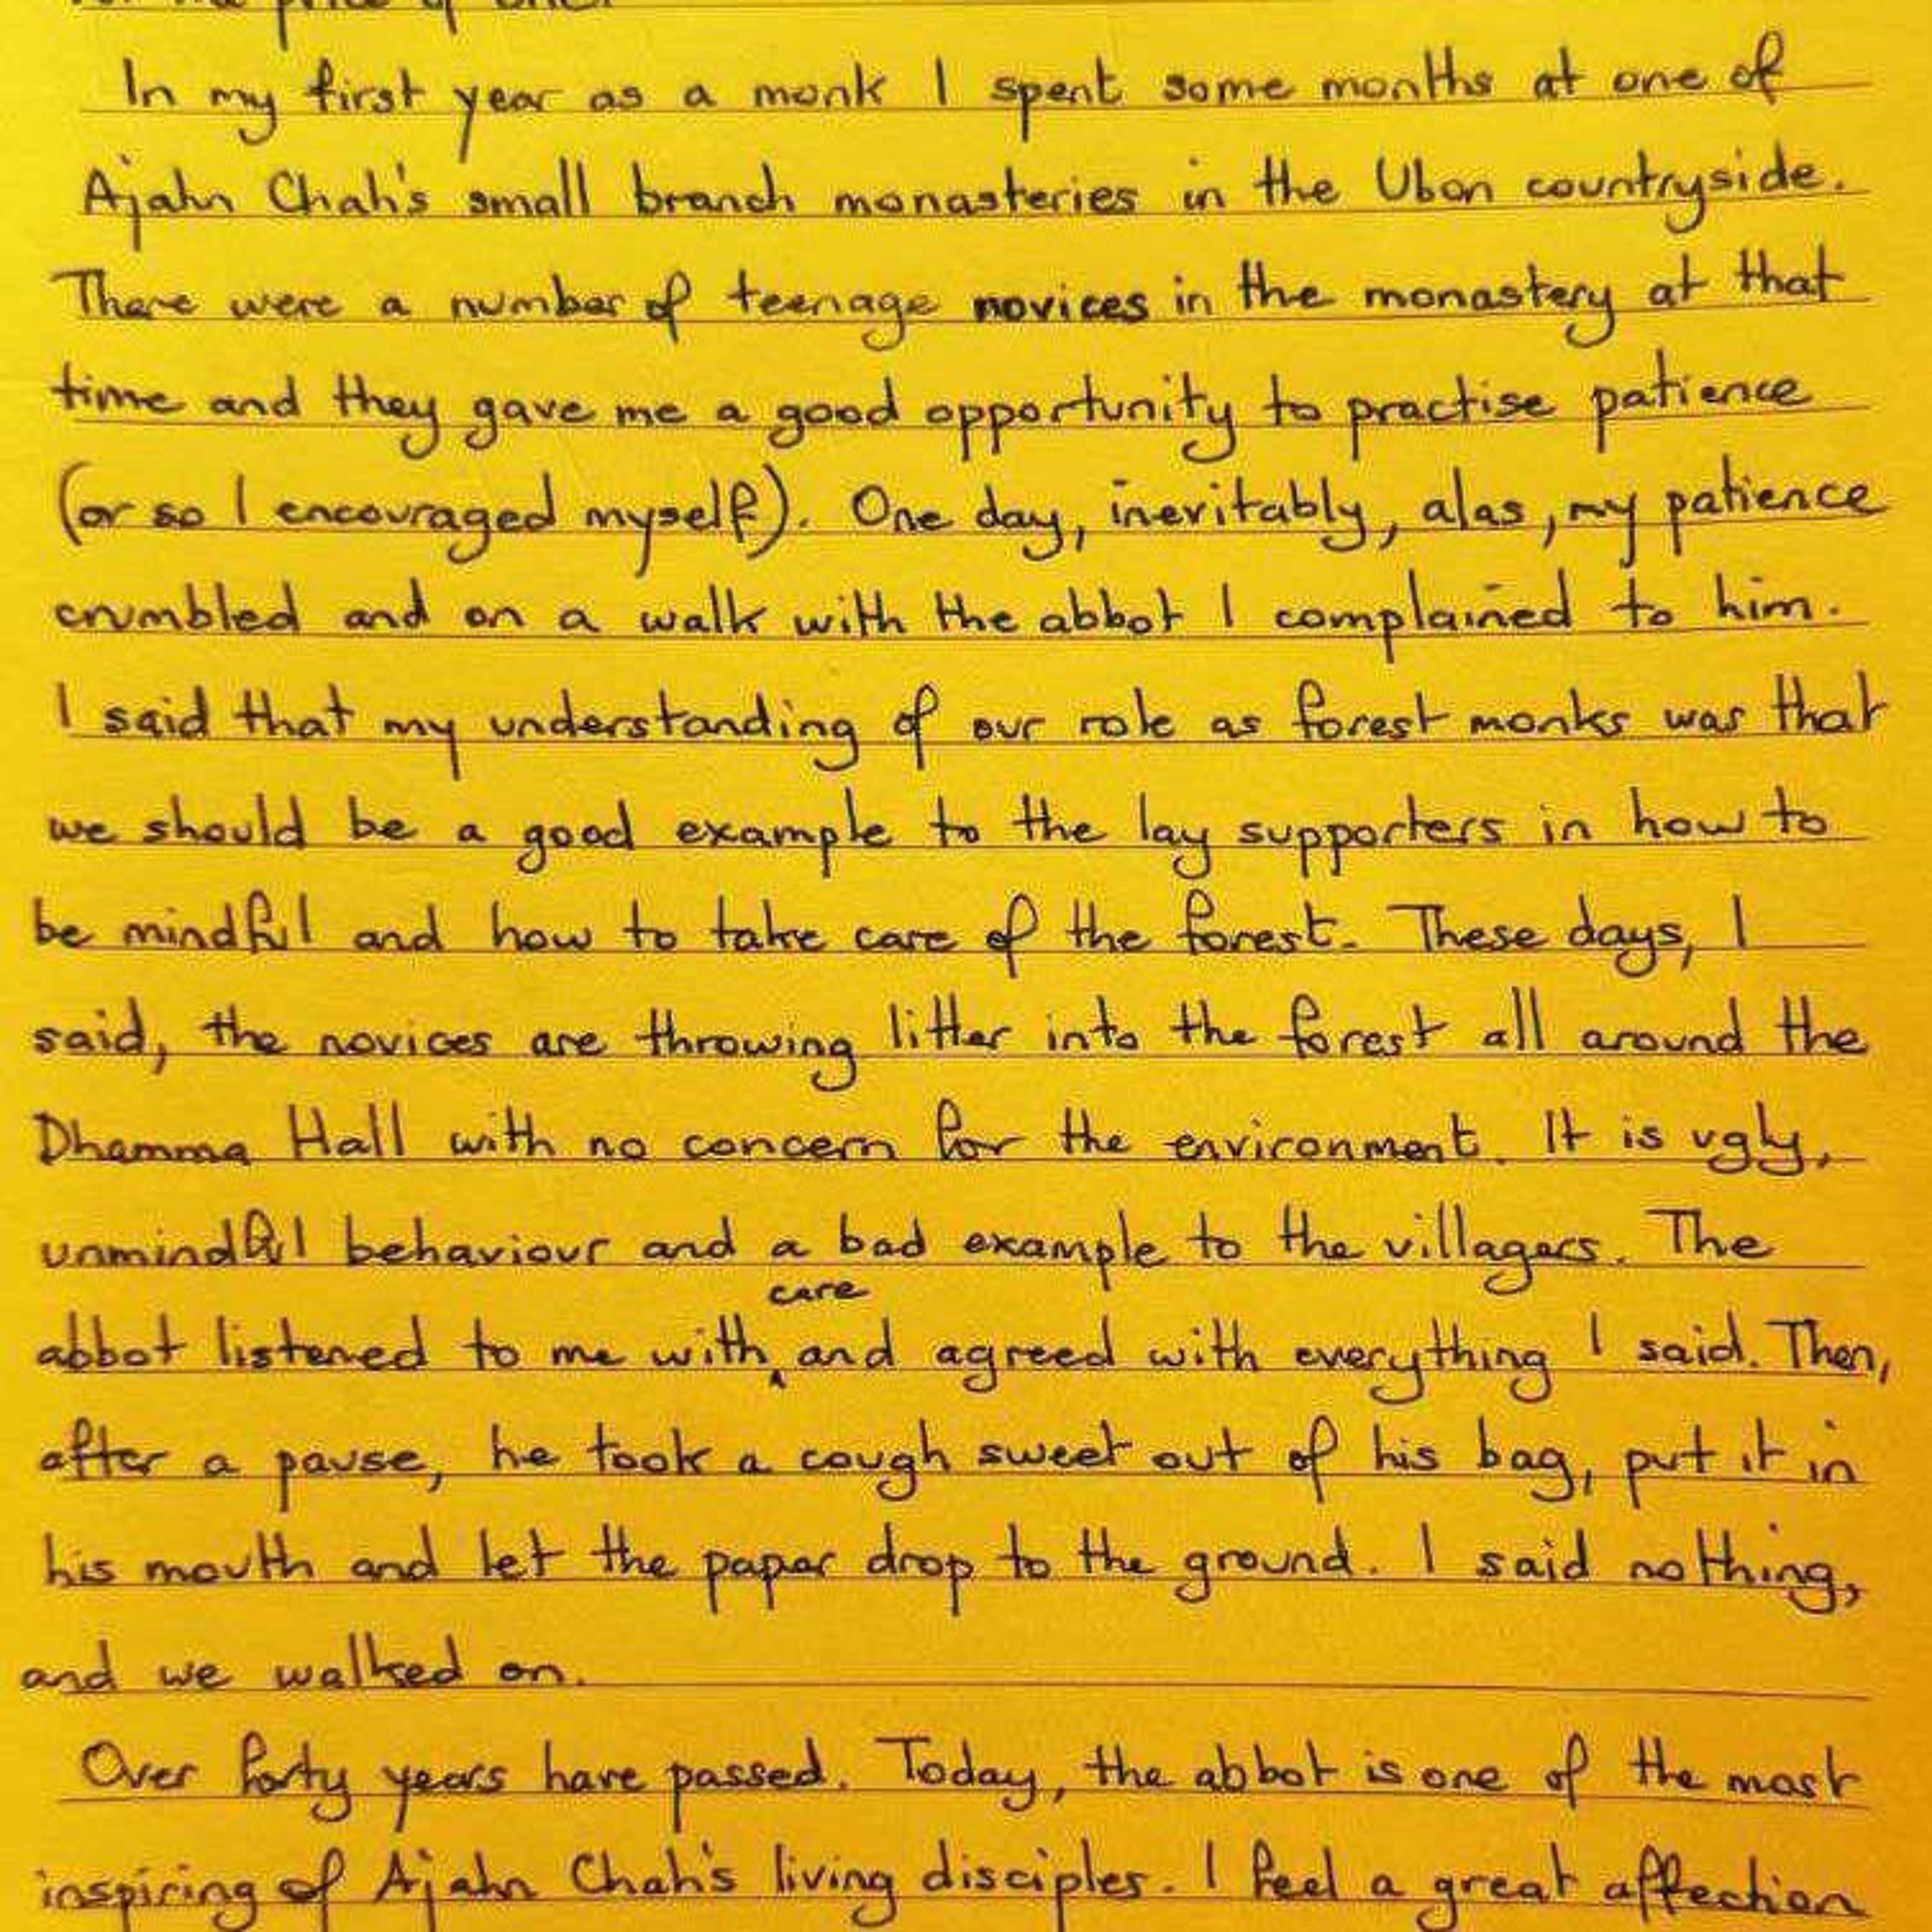 price of one.
In my first year as a monk I spent some months at one of
Ajahn Chah's small branch monasteries in the Ubon countryside.
There were a number of teenage novices in the monastery at that
time and they gave me a good opportunity to practise patience
(or so I encouraged myself). One day, inevitably, alas, my patience
crumbled and on a walk with the abbot I complained to him.
I said that my understanding of our role as forest monks was that
we should be a good example to the lay supporters in how to
be mindful and how to take care of the forest. These days, I
said, the novices are throwing litter into the forest all around the
Dhamma Hall with no concern for the environment. It is ugly,
unmindful behaviour and a bad example to the villagers. The
care
abbot listened to me with and agreed with everything I said. Then,
after a pause, he took a cough sweet out of his bag, put it in
his mouth and let the paper drop to the ground. I said nothing,
and we walked on.
Over forty years have passed. Today, the abbot is one of the most
inspiring of Ajahn Chah's living disciples. I feel a great affection